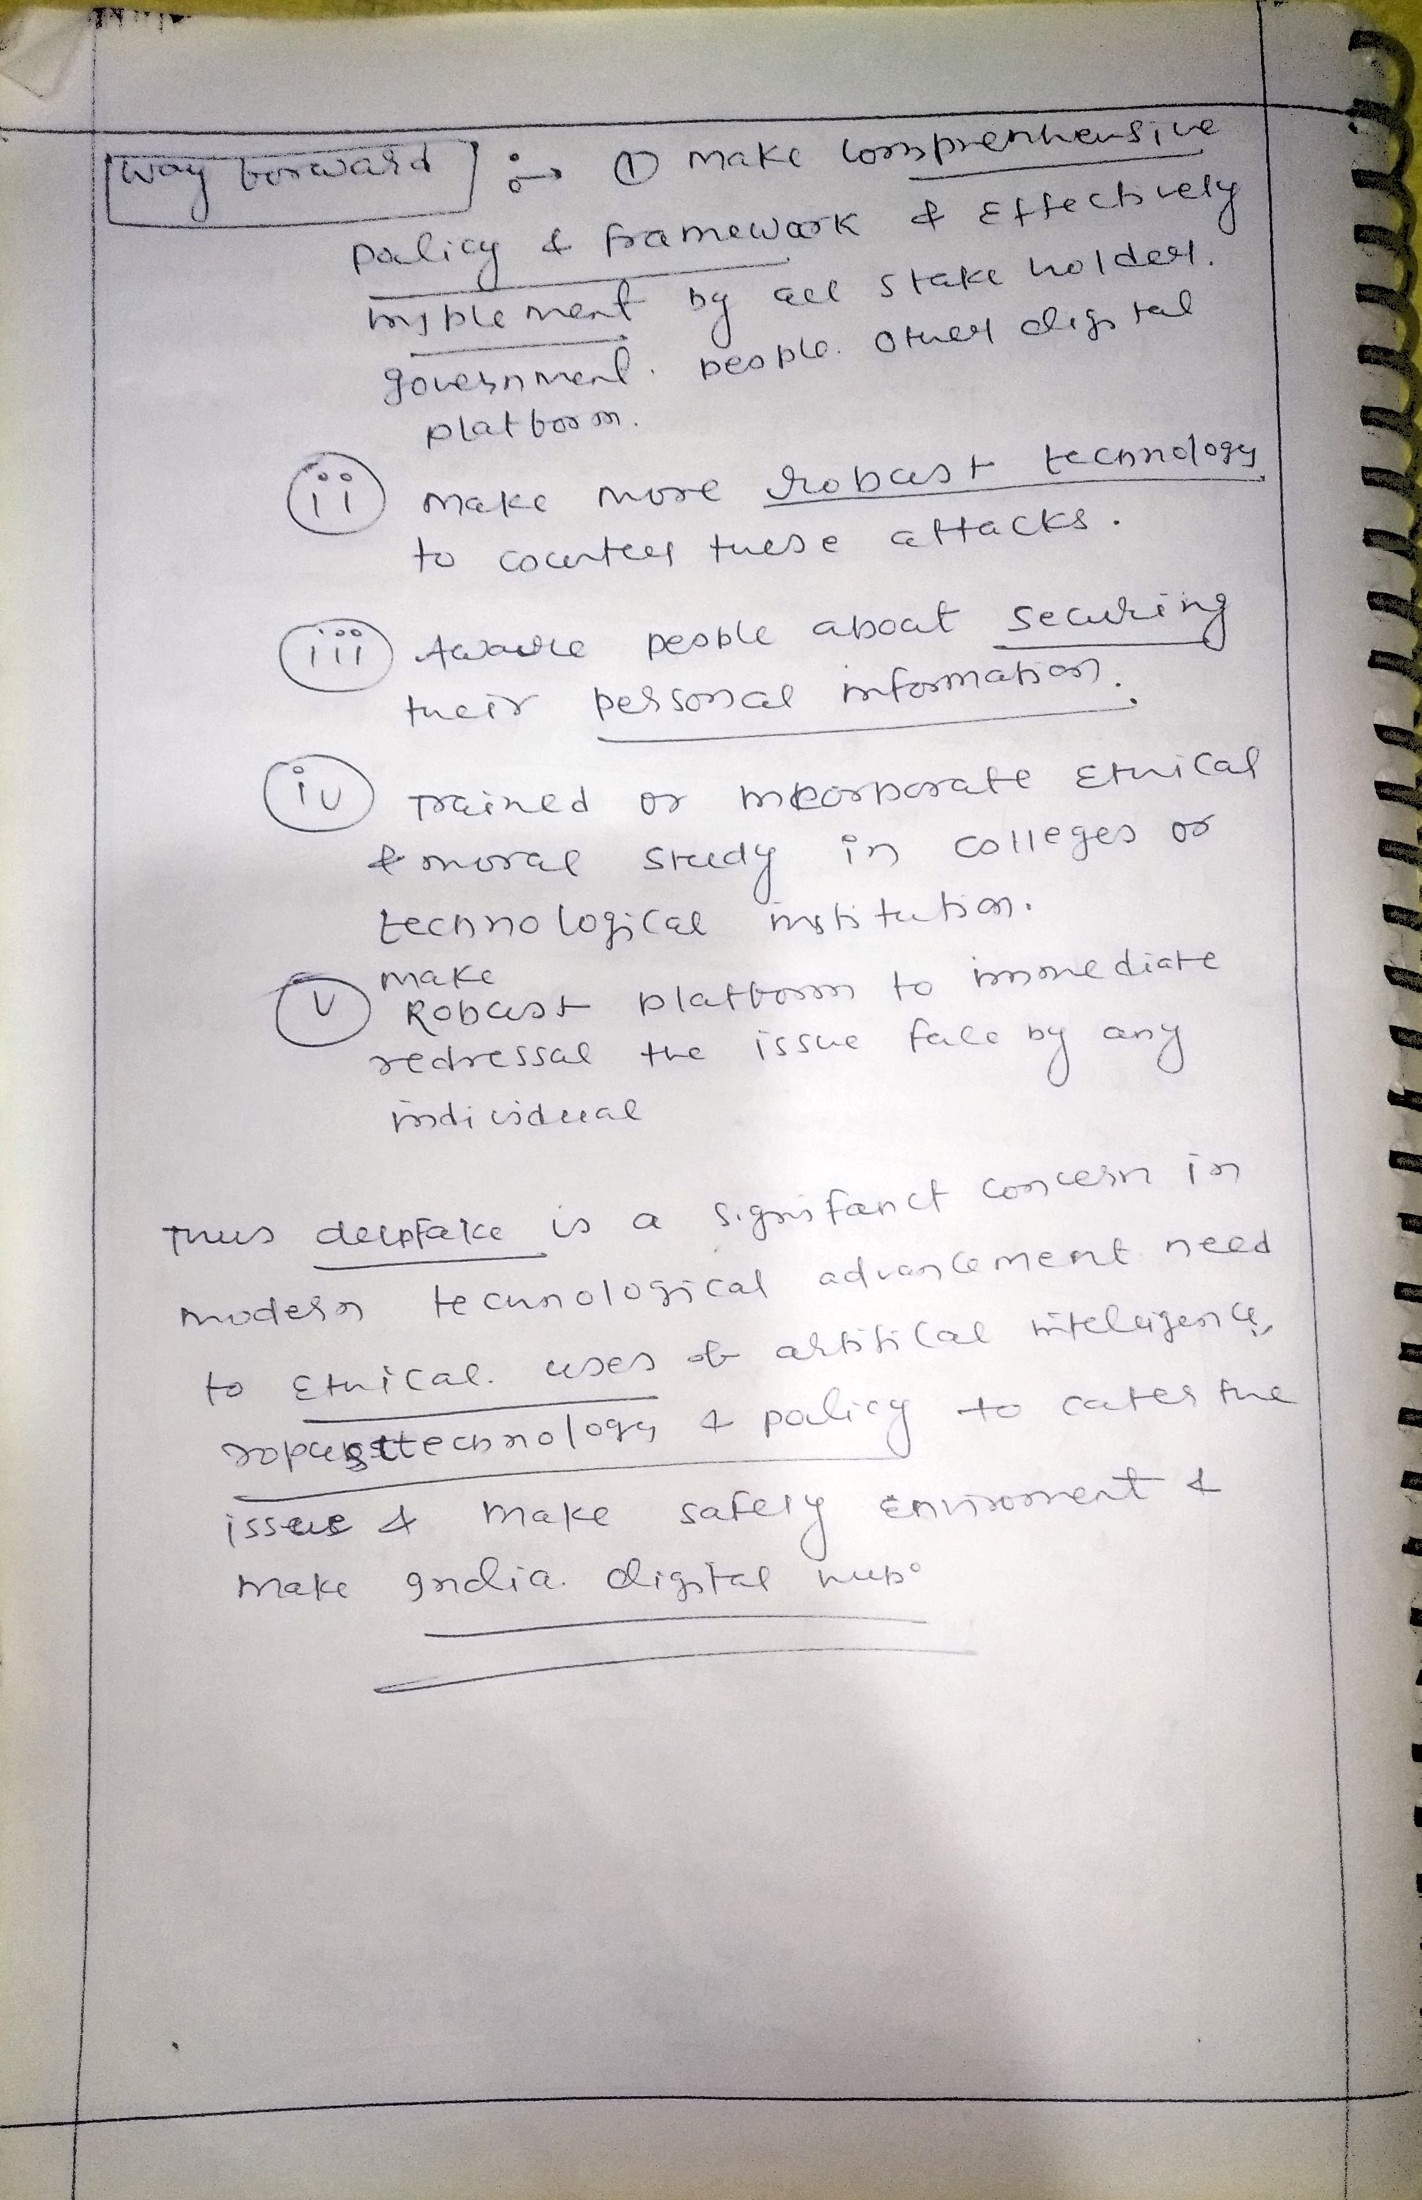 Way forward :→ ① Make comprenhensive
policy & framework & Effectively
implement by all stake holder.
government. people. other digital
platform.
(ii) make more robust technology
to counter these attacks.
(iii) Aware people about securing
their personal information.
(iv) Trained or incorporate Ethical
& moral study in colleges or
technological institution.
make
(v) Robust platform to immediate
redressal the issue face by any
individual
Thus deepfake is a signifanct concern in
modern technological advancement need
to Ethical. uses of artifical intelligence,
robust technology & policy to cater the
issue & make safety Enviroment &
make India digital hub.